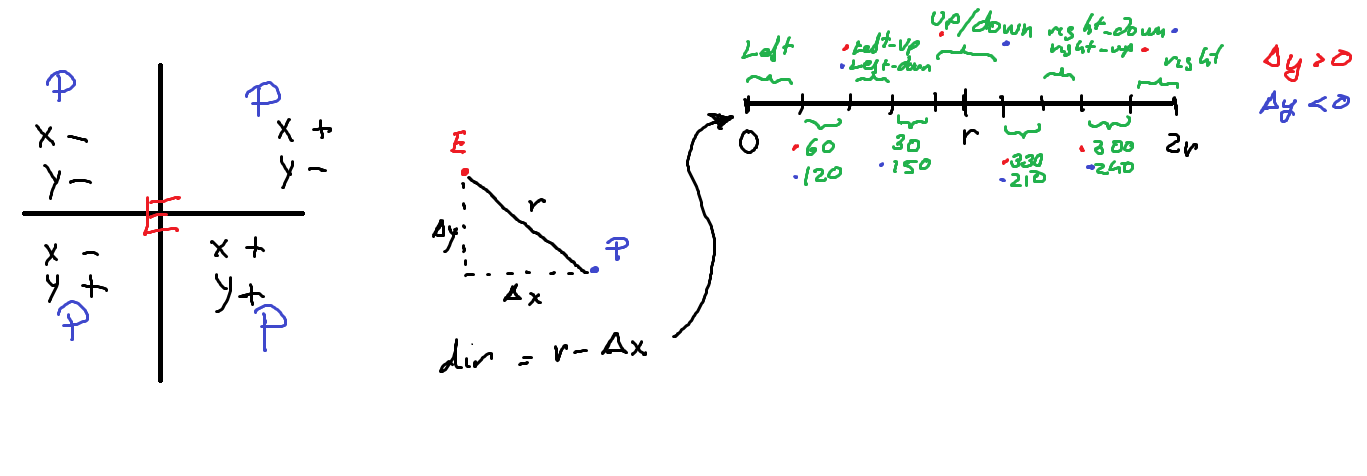 P
x -
y -
P
x +
y -
E
x -
y +
P
x +
y +
P
E
r
Δy
P
Δx
dir = r - Δx
Left
Left-up
Left-down
up/down
right-down
right-up
right
0
r
2r
60
120
30
150
330
210
300
240
Δy > 0
Δy < 0